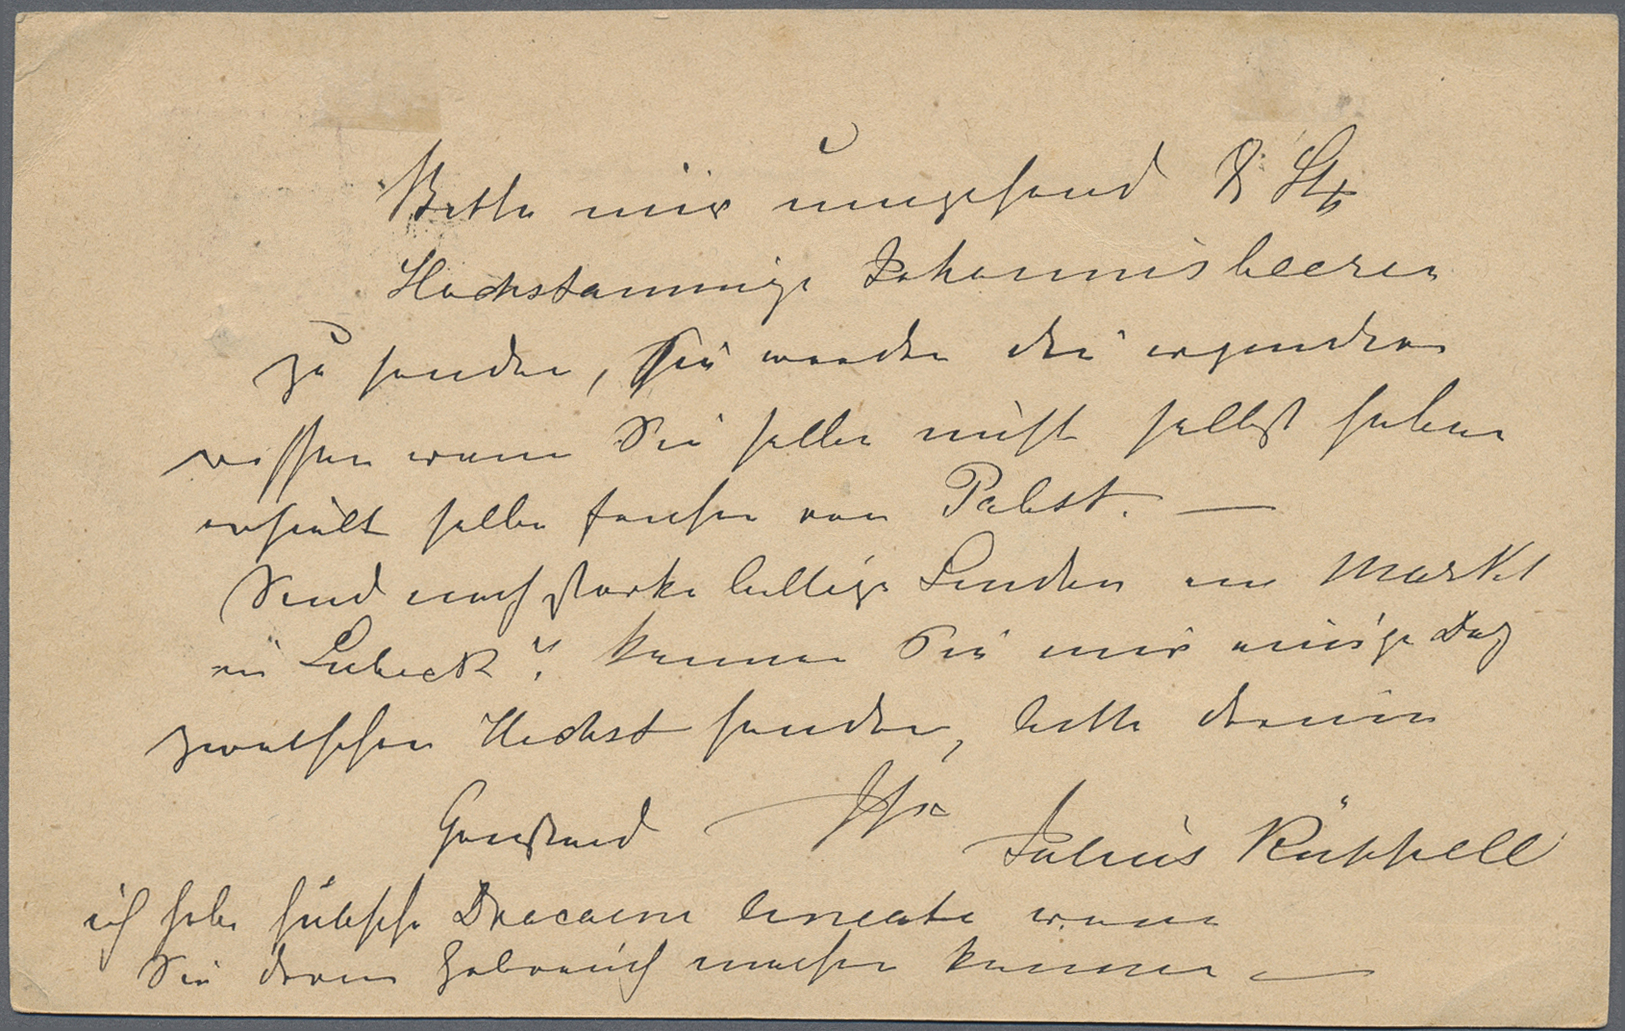 Bitte mir umgehend 8 St
Hochstammige Johannisbeeren
zu senden, Sie werden die irgendwo
wissen wenn Sie selbe nicht selbst haben
erhielt selbe fruher von Pabst. —
Sind noch starke billige Linden am Markt
in Lubeck? konnen Sie mir einige
zwetschen Hochst senden, bitte darum
Grussend Ihr Julius Rüppell
ich habe hübsche Dracaena lineata wenn
Sie davon Gebrauch machen konnen —